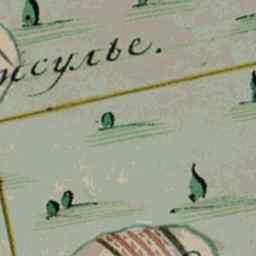 нсулье.